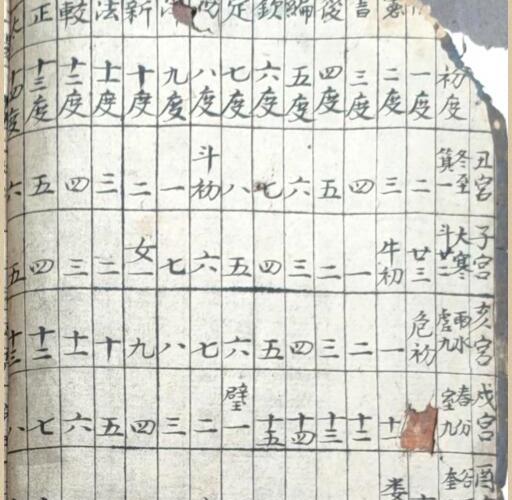 丑宮 子宮 亥宮 戌宮
初度 冬至 箕一 大寒 斗廿二 雨水 虛九 春分 室九 奎
一度 二 廿三 危初
二度 三 牛初 一 十一 婁
書 三度 四 一 二 十二
四度 五 二 三 十三
編 五度 六 三 四 十四
欽 六度 七 四 五 十五
定 七度 八 五 六 壁一
八度 斗初 六 七 二
九度 一 七 八 三
新 十度 二 女一 九 四
法 十一度 三 二 十 五
較 十二度 四 三 十一 六
正 十三度 五 四 十二 七
十四度 六 五 十三 八